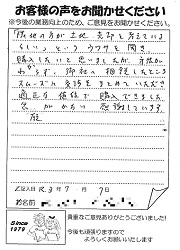 お客様の声をお聞かせください
※今後の業務向上のため、ご意見をお聞かせください
隣地の方が土地 売却を考えている
らしい」という ウワサを聞き
購入したいと思いましたが 方法が
わからず、御社に相談したところ
スムーズに交渉をまとめていただき
適正な価格で 購入できました。
心から 感謝しています
ご記入日 R.3年 7月 7日
お名前
Since
1979
貴重なご意見ありがとうございました!
今後も頑張りますので
よろしくお願いいたします